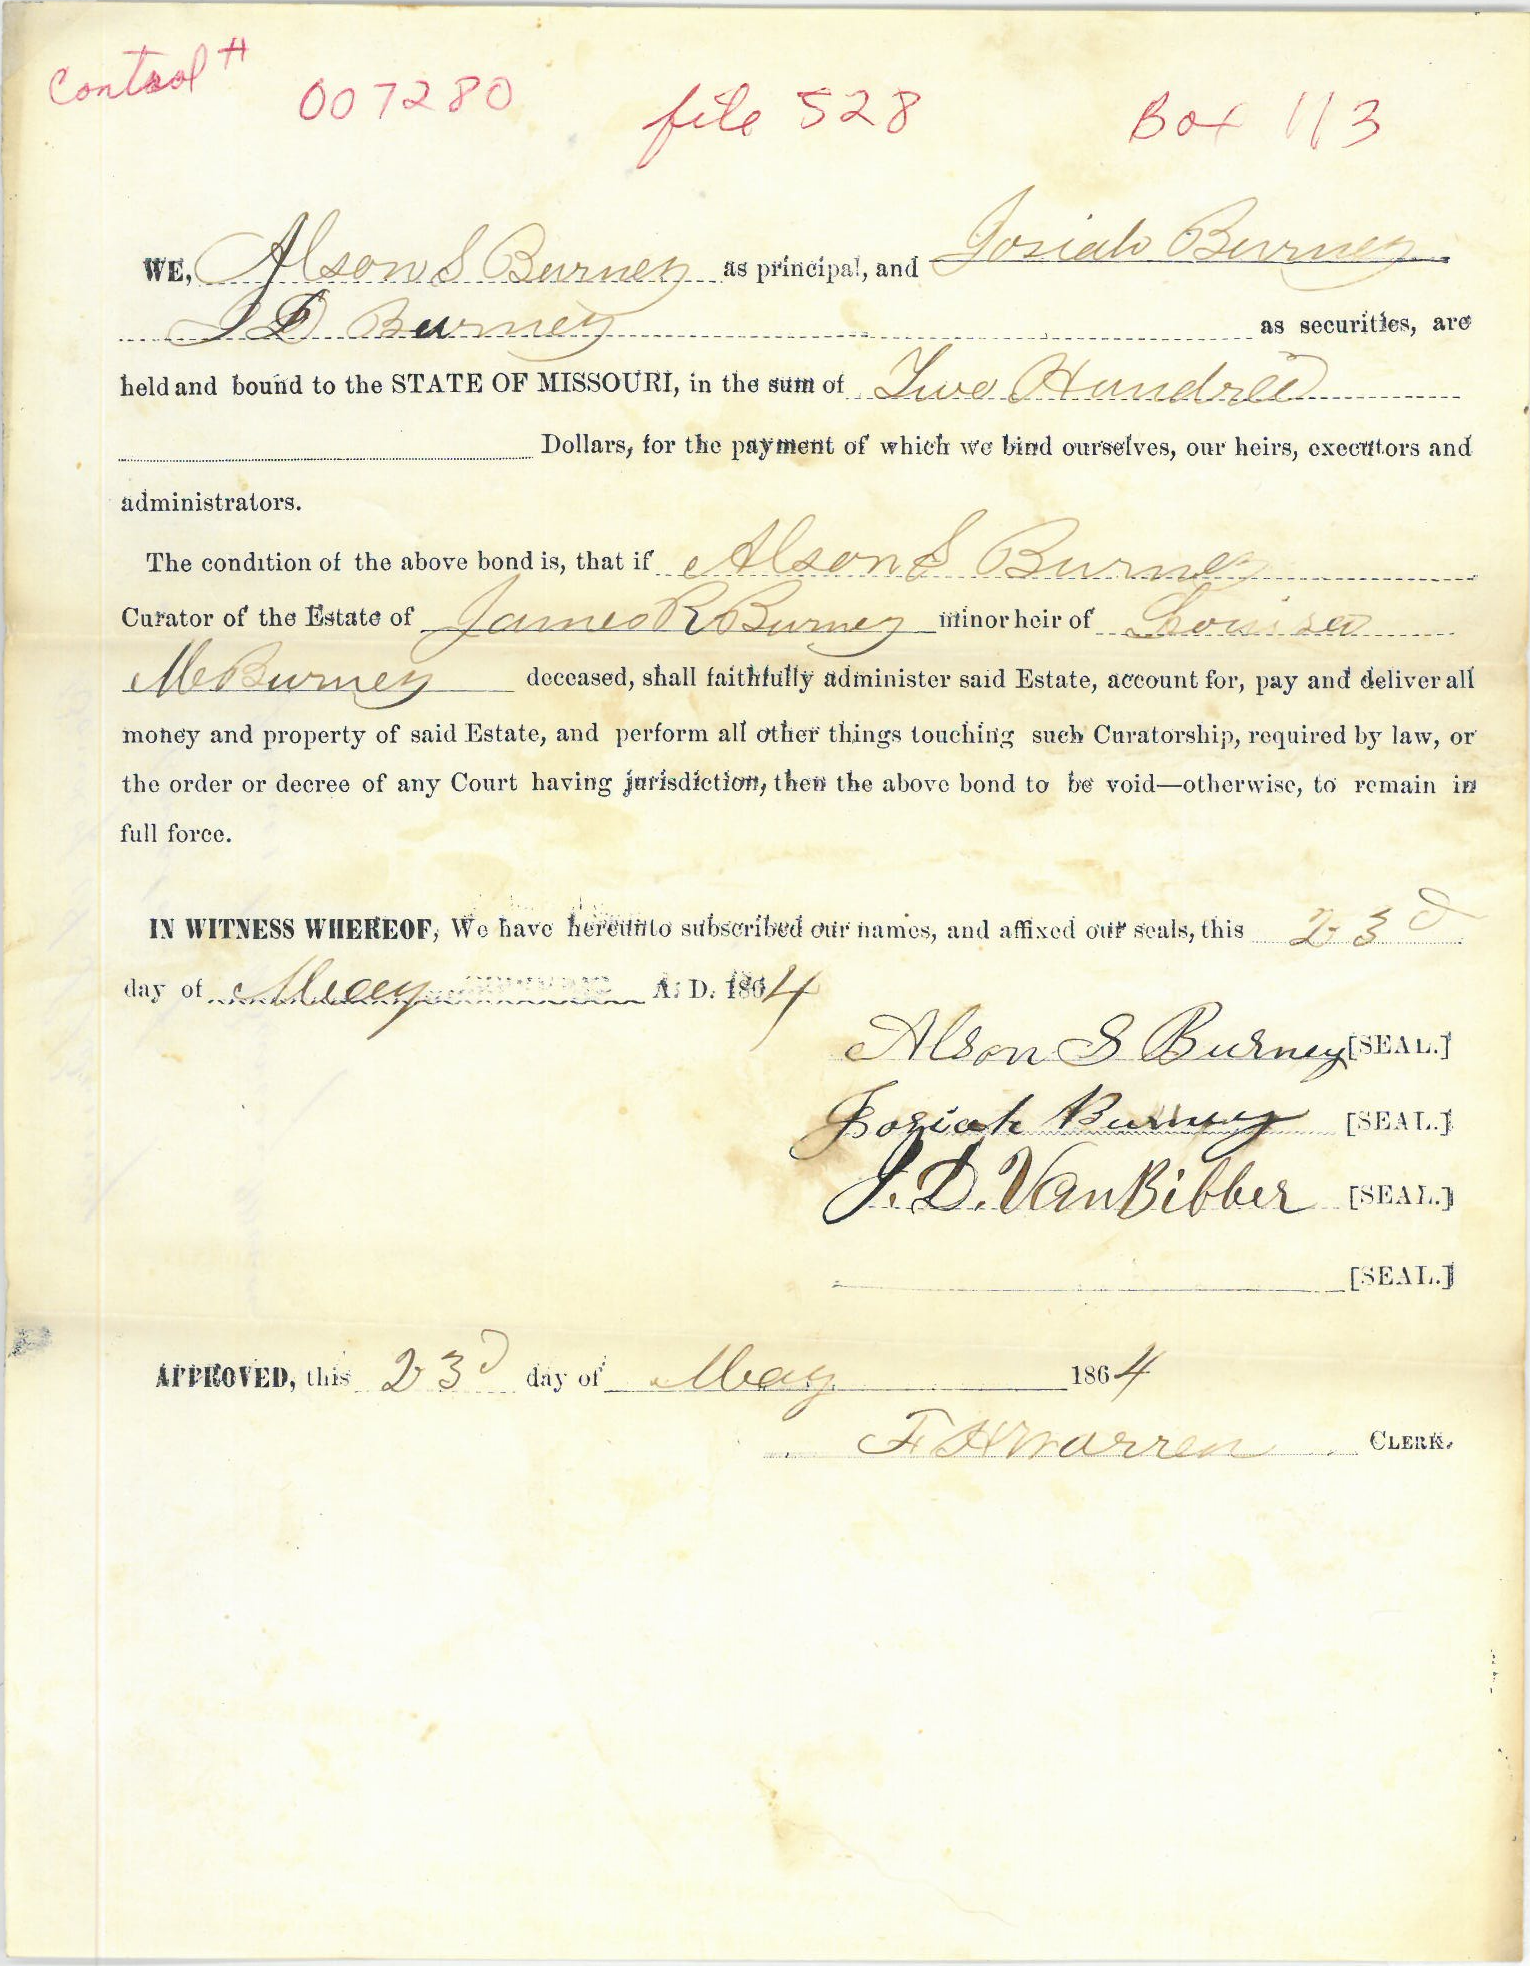 Control # 007280 file 528 Box 113
WE, Alson S Burney as principal, and Josiah Burney
J D Burney as securities, are
held and bound to the STATE OF MISSOURI, in the sum of Two Hundred
Dollars, for the payment of which we bind ourselves, our heirs, executors and
administrators.
The condition of the above bond is, that if Alson S Burney
Curator of the Estate of James R Burney minor heir of Louisa
M Burney deceased, shall faithfully administer said Estate, account for, pay and deliver all
money and property of said Estate, and perform all other things touching such Curatorship, required by law, or
the order or decree of any Court having jurisdiction, then the above bond to be void—otherwise, to remain in
full force.
IN WITNESS WHEREOF, We have hereunto subscribed our names, and affixed our seals, this 23d
day of May A. D. 1864
Alson S Burney [SEAL.]
Josiah Burney [SEAL.]
J. D. VanBibber [SEAL.]
[SEAL.]
APPROVED, this 23d day of May 1864
F H Warren CLERK.